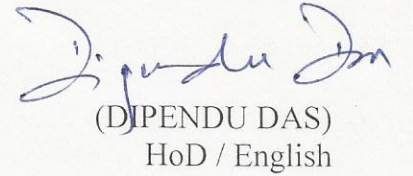 Dipendu Das
(DIPENDU DAS)
HoD / English